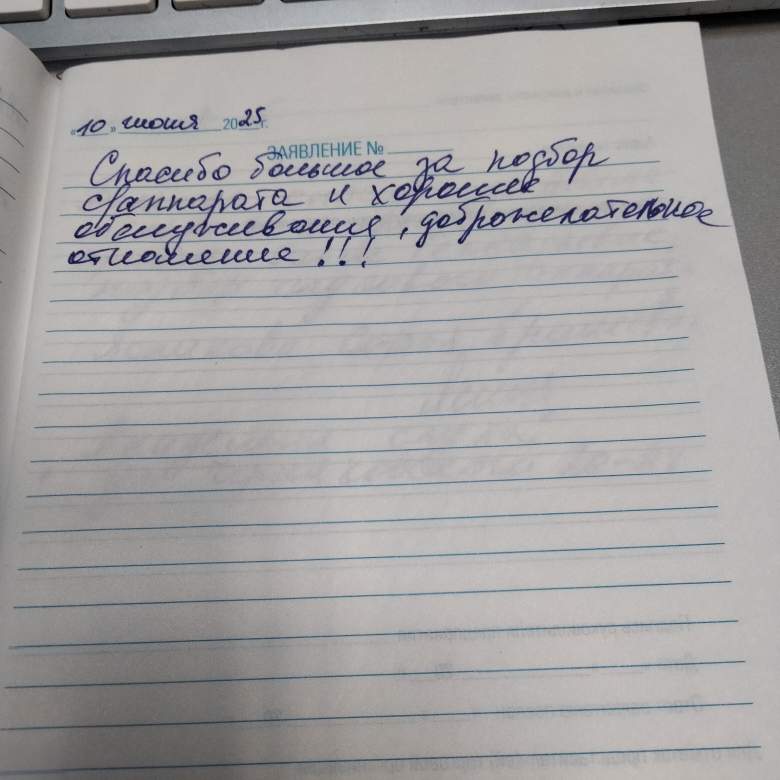 «10» июня 2025г.
ЗАЯВЛЕНИЕ №
Спасибо большое за подбор
с/аппарата и хорошее
обслуживания, доброжелательное
отношение!!!